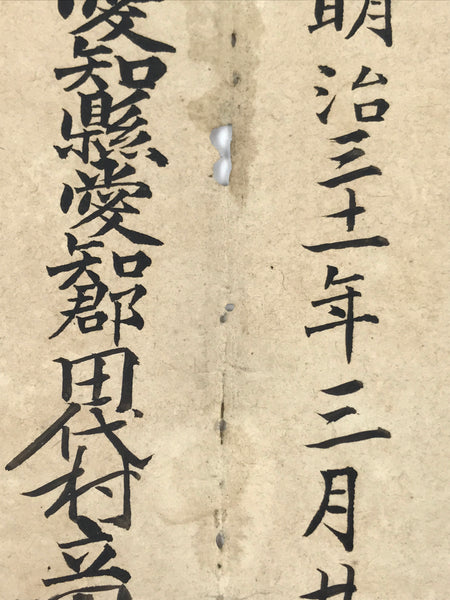 明治三十一年三月廿
愛知縣愛知郡田代村立